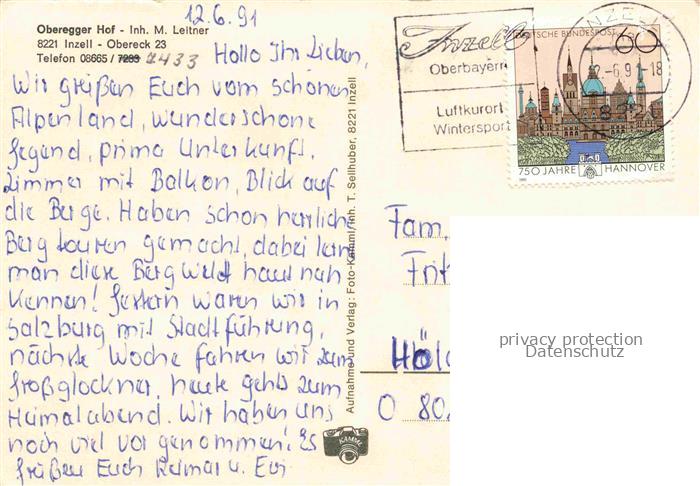 12.6.91
Oberegger Hof - Inh. M. Leitner
8221 Inzell - Obereck 23
Telefon 08665 / 7283 7433
Hallo Ihr Lieben,
Wir grüßen Euch vom schönen
Alpenland, wunderschöne
Gegend, prima Unterkunft,
Zimmer mit Balkon, Blick auf
die Berge. Haben schon herrliche
Bergtouren gemacht, dabei lern
man diese Bergwelt haut nah
kennen! Gestern waren wir in
Salzburg mit Stadtführung,
nächste Woche fahren wir zum
Großglockner, heute gehts zum
Heimatabend. Wir haben uns
noch viel vorgenommen! Es
grüßen Euch Reimar u. Evi
Aufnahme und Verlag: Foto-Kamml/Inh. T. Sellhuber, 8221 Inzell
KAMML
Inzell
Oberbayern
Luftkurort
Wintersport
DEUTSCHE BUNDESPOST 60
750 JAHRE HANNOVER
INZELL
-6.91-18
8221
Fam.
Frit
Höl
O 80
privacy protection
Datenschutz